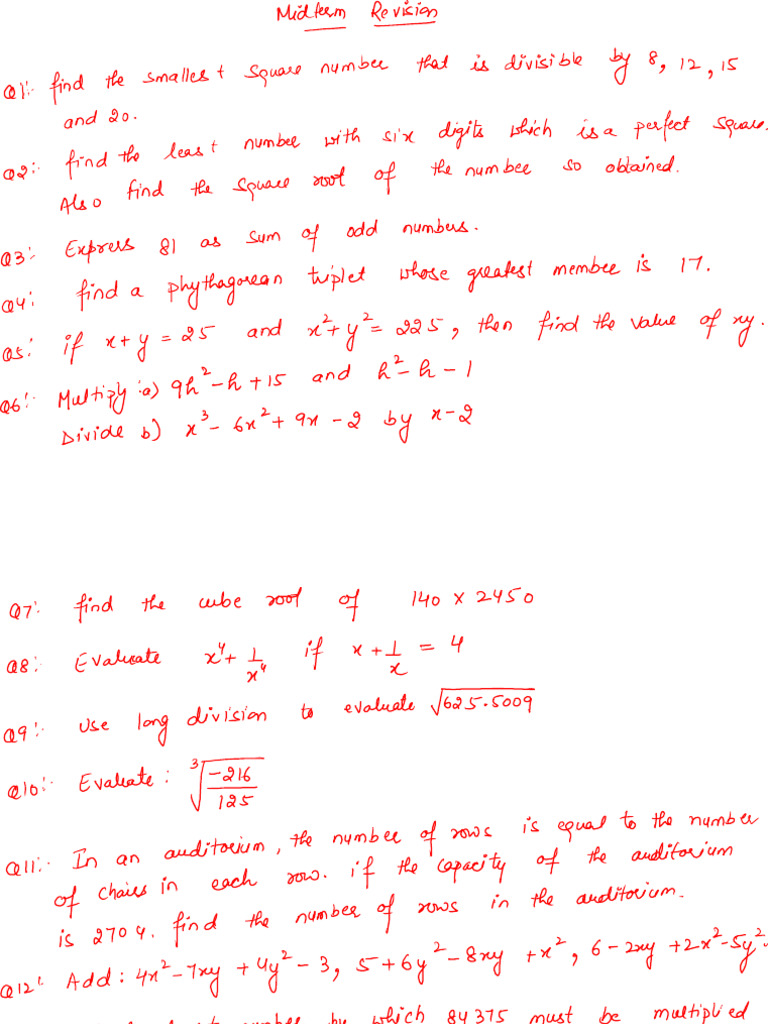 Midterm Revision
Q1:- find the smallest square number that is divisible by 8, 12, 15
and 20.
Q2:- find the least number with six digits which is a perfect square.
Also find the square root of the number so obtained.
Q3:- Express 81 as sum of odd numbers.
Q4:- find a phythagorean triplet whose greatest member is 17.
Q5:- if x+y = 25 and x²+y² = 225, then find the value of xy.
Q6:- Multiply:a) 9h²-h+15 and h²-h-1
Divide b) x³-6x²+9x-2 by x-2
Q7:- find the cube root of 140 x 2450
Q8:- Evaluate x⁴+1/x⁴ if x+1/x = 4
Q9:- use long division to evaluate √625.5009
Q10:- Evaluate: ∛-216/125
Q11:- In an auditorium, the number of rows is equal to the number
of chairs in each row. if the capacity of the auditorium
is 2704. find the number of rows in the auditorium.
Q12:- Add: 4x²-7xy+4y²-3, 5+6y²-8xy+x², 6-2xy+2x²-5y².
number by which 84375 must be multiplied